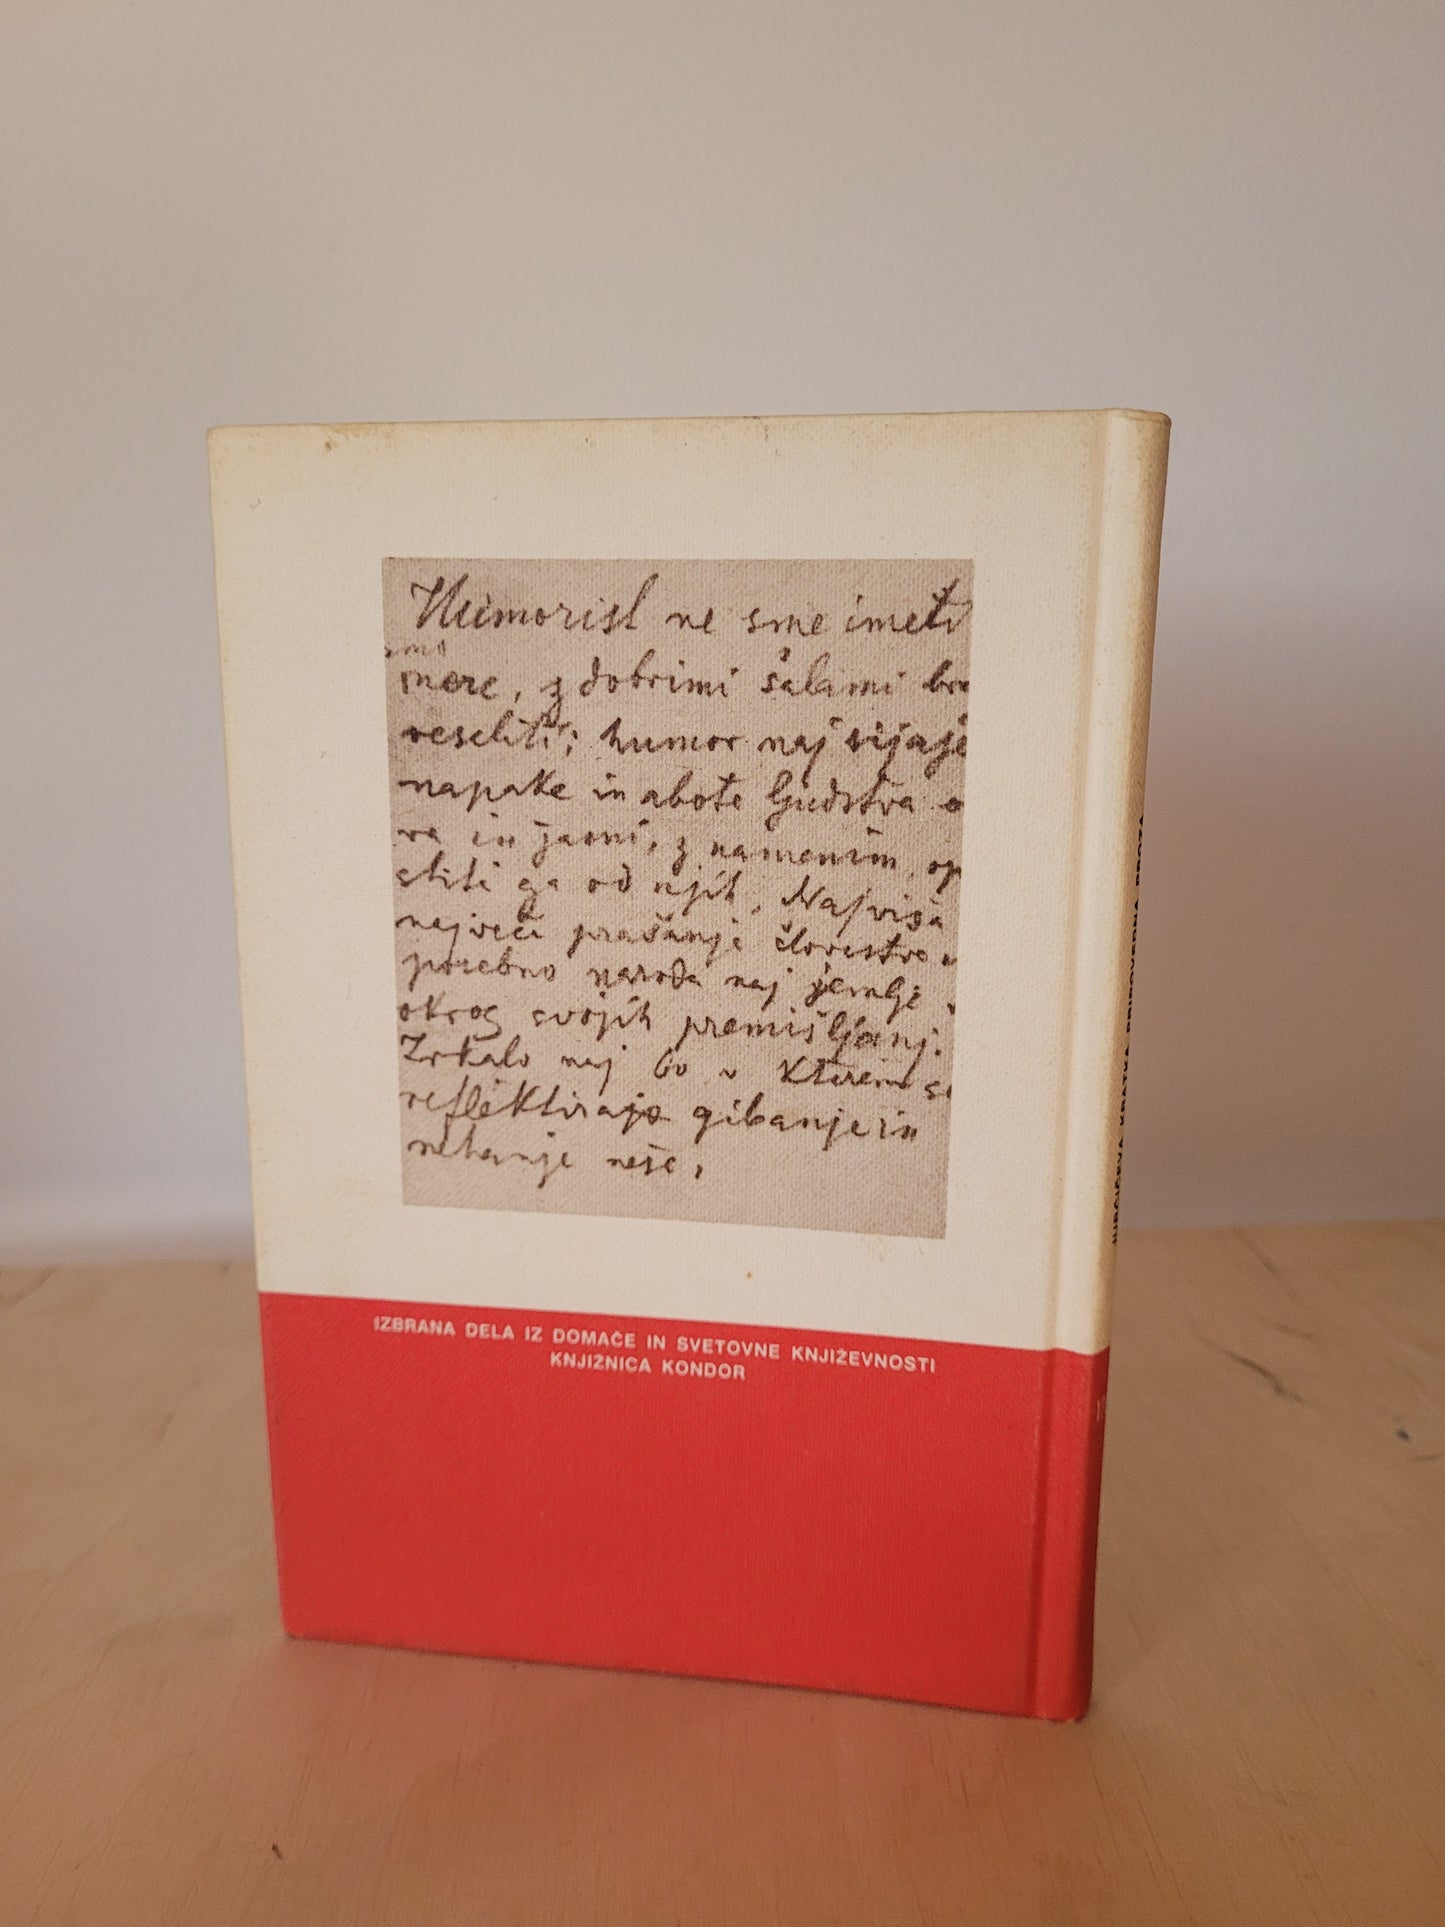 Humorist ne sme imeti
mere, z dobrimi šalami
veseliti; humor naj sijaje
napake in abote ljudstva
in jasni, z namenim,
ga od njih. Najviša
največa prašanje človestva
posebno naroda naj jemlje
okrog svojih premišljanj.
Zrkalo naj bo v kterem se
reflektiraje gibanje in
nehanje neše,
IZBRANA DELA IZ DOMAČE IN SVETOVNE KNJIŽEVNOSTI
KNJIŽNICA KONDOR
JURČIČEVA KRATKA PRIPOVEDNA PROZA